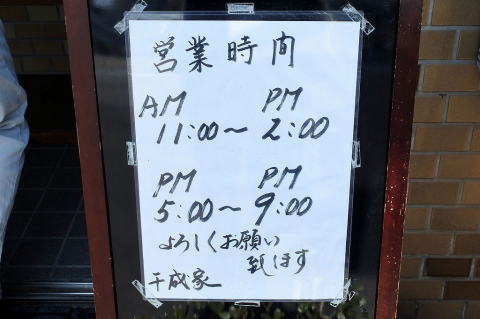 営業時間
AM PM
11:00〜2:00
PM PM
5:00〜9:00
よろしくお願い
致します
千成家